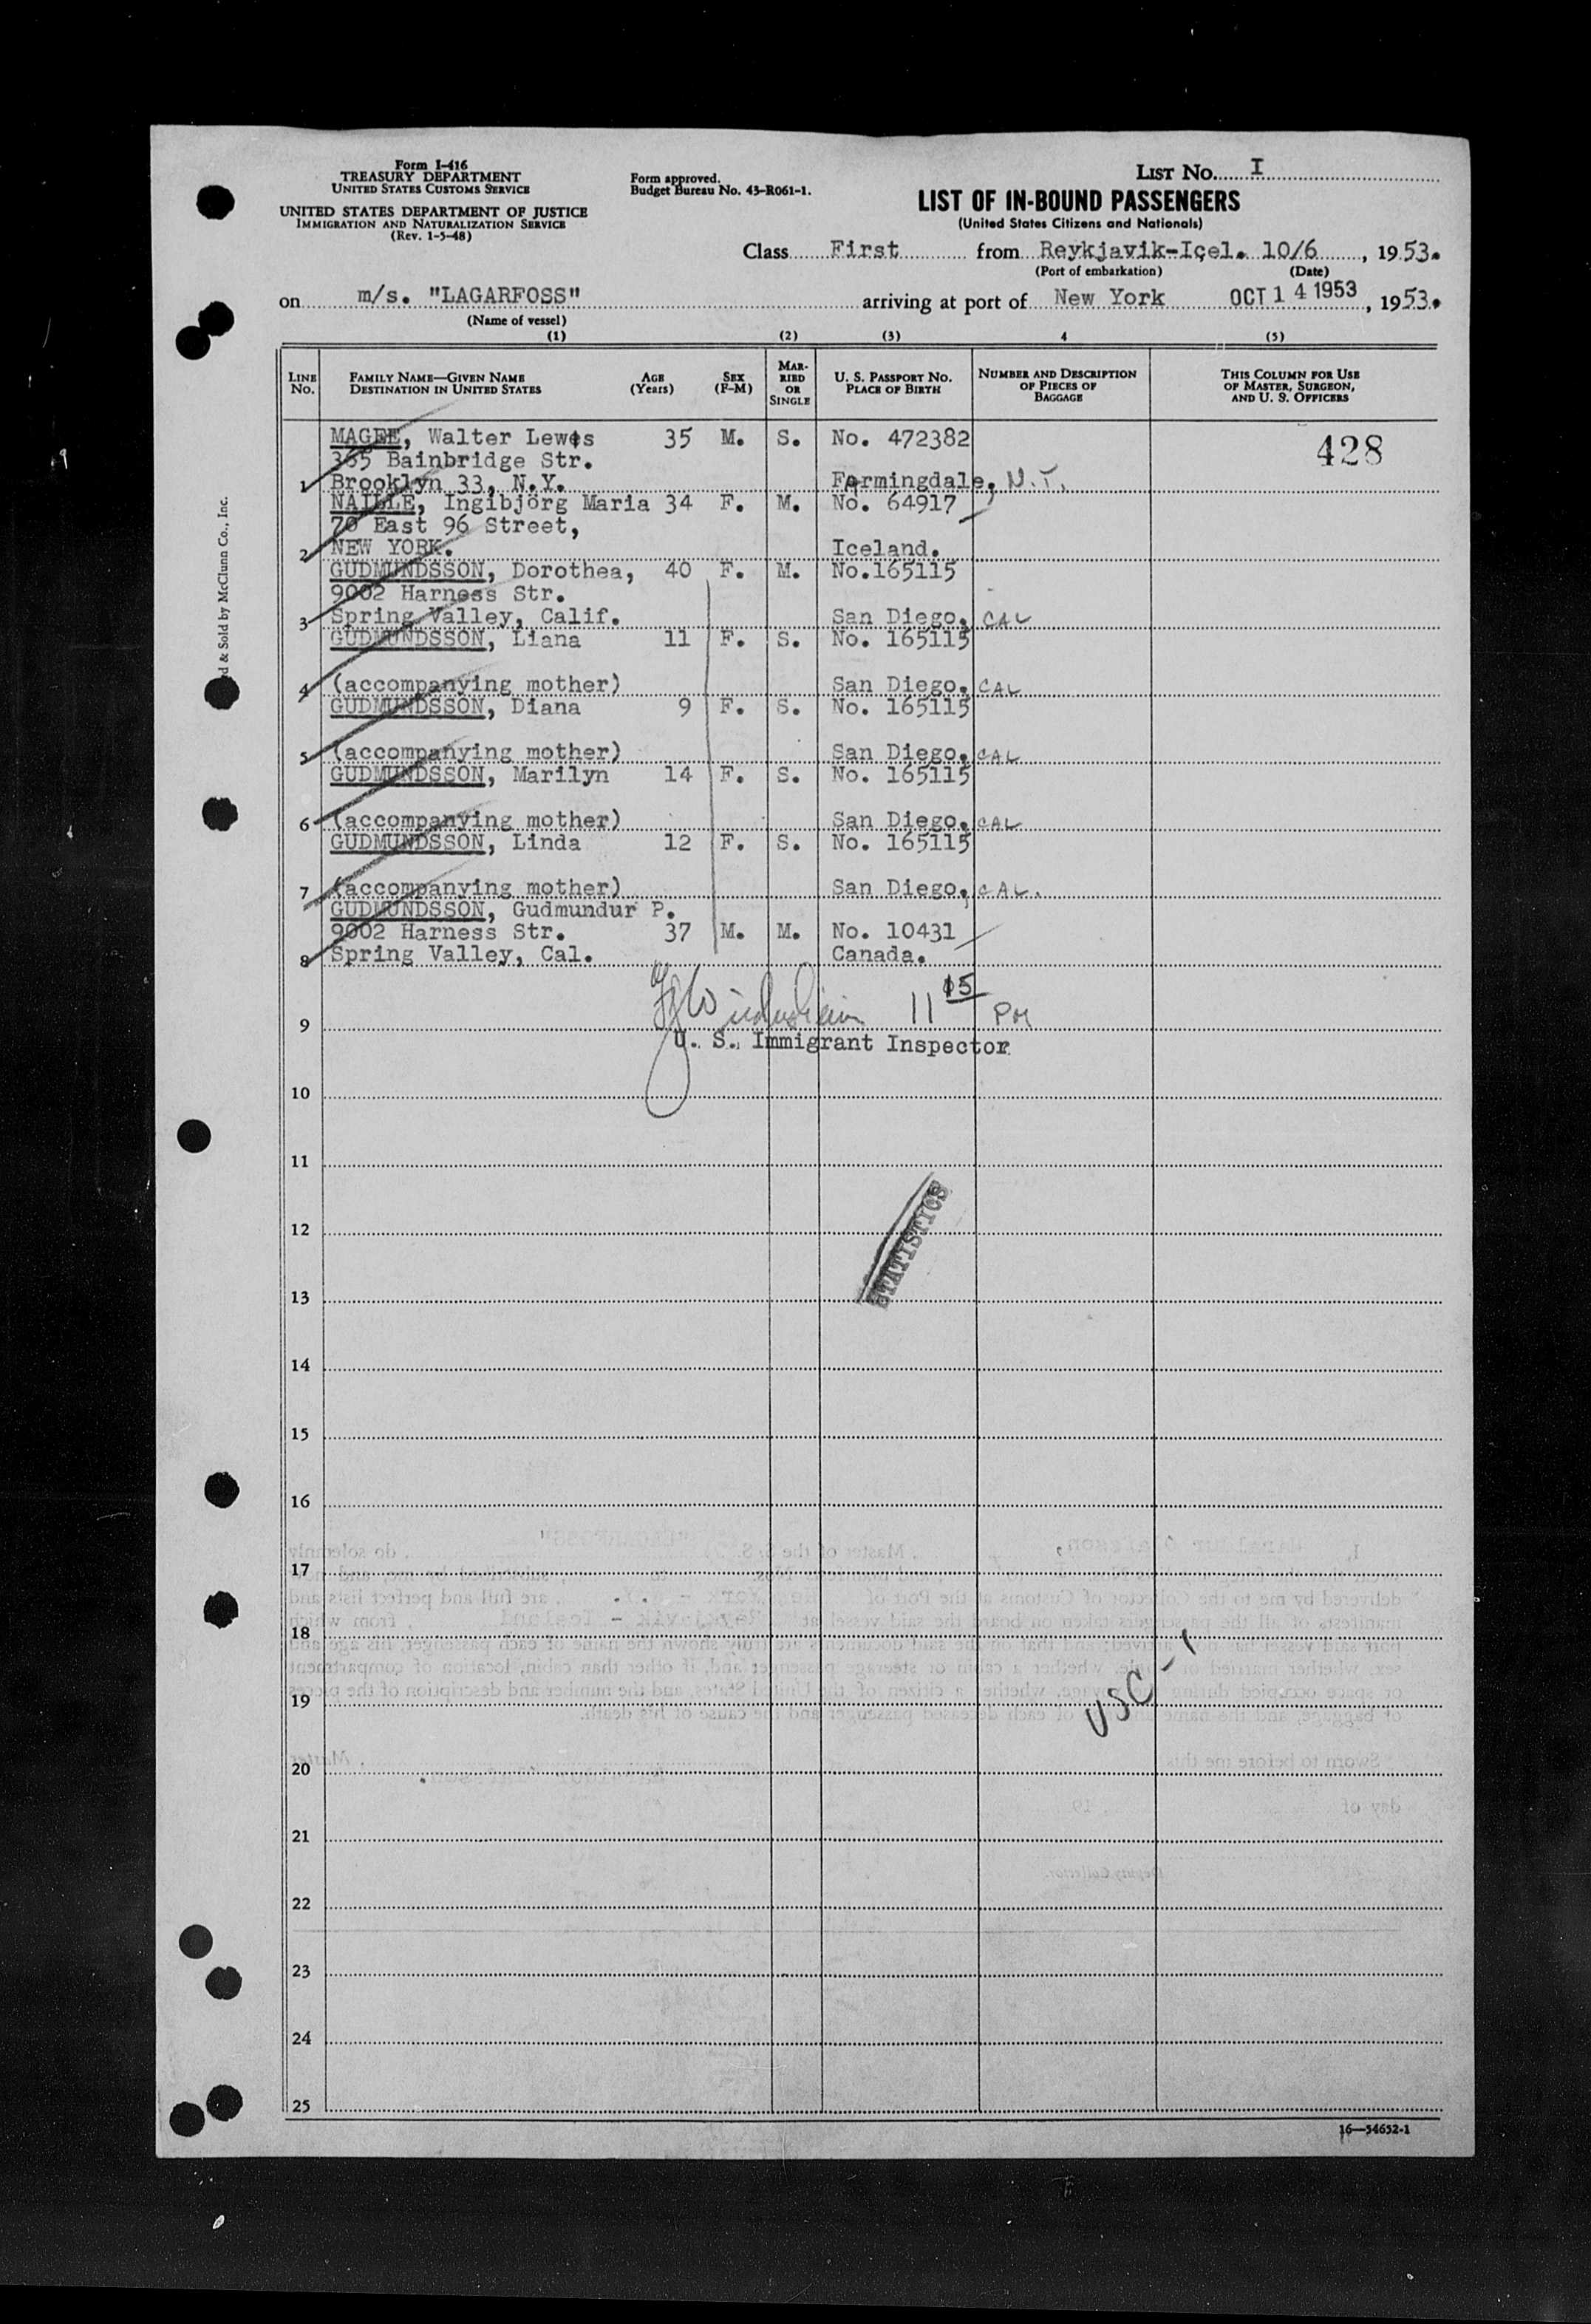 Form I-416
TREASURY DEPARTMENT
UNITED STATES CUSTOMS SERVICE
UNITED STATES DEPARTMENT OF JUSTICE
IMMIGRATION AND NATURALIZATION SERVICE
(Rev. 1-5-48)
Form approved.
Budget Bureau No. 43-R061-1.
LIST NO. I
LIST OF IN-BOUND PASSENGERS
(United States Citizens and Nationals)
Class First from Reykjavik-Icel. 10/6, 1953.
(Port of embarkation) (Date)
on m/s. "LAGARFOSS" arriving at port of New York OCT 14 1953, 1953.
(Name of vessel)
(1) (2) (3) 4 (5)
LINE NO. FAMILY NAME—GIVEN NAME DESTINATION IN UNITED STATES AGE (Years) SEX (F-M) MARRIED OR SINGLE U. S. PASSPORT NO. PLACE OF BIRTH NUMBER AND DESCRIPTION OF PIECES OF BAGGAGE THIS COLUMN FOR USE OF MASTER, SURGEON, AND U. S. OFFICERS
MAGEE, Walter Lewis 35 M. S. No. 472382 428
365 Bainbridge Str.
1 Brooklyn 33, N.Y. Farmingdale, N.Y.
NAILLE, Ingibjörg Maria 34 F. M. No. 64917
70 East 96 Street,
2 NEW YORK. Iceland.
GUDMUNDSSON, Dorothea, 40 F. M. No.165115
9002 Harness Str.
3 Spring Valley, Calif. San Diego, CAL
GUDMUNDSSON, Liana 11 F. S. No. 165115
4 (accompanying mother) San Diego, CAL
GUDMUNDSSON, Diana 9 F. S. No. 165115
5 (accompanying mother) San Diego, CAL
GUDMUNDSSON, Marilyn 14 F. S. No. 165115
6 (accompanying mother) San Diego, CAL
GUDMUNDSSON, Linda 12 F. S. No. 165115
7 (accompanying mother) San Diego, CAL.
GUDMUNDSSON, Gudmundur P.
9002 Harness Str. 37 M. M. No. 10431
8 Spring Valley, Cal. Canada.
11 15 PM
9
U. S. Immigrant Inspector
10
11
STATISTICS
12
13
14
15
16
17
18
USC - 1
19
20
21
22
23
24
25
16—54652-1
d & Sold by McClunn Co., Inc.